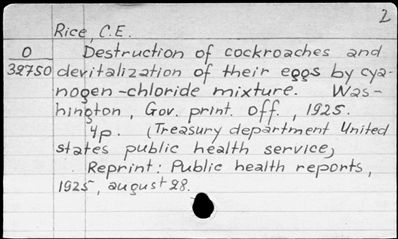 2
Rice, C.E.
O Destruction of cockroaches and
38750 devitalization of their eggs by cya-
nogen-chloride mixture. Was-
hington, Gov. print. off., 1925.
4p. (Treasury department United
states public health service)
Reprint: Public health reports,
1925, august 28.